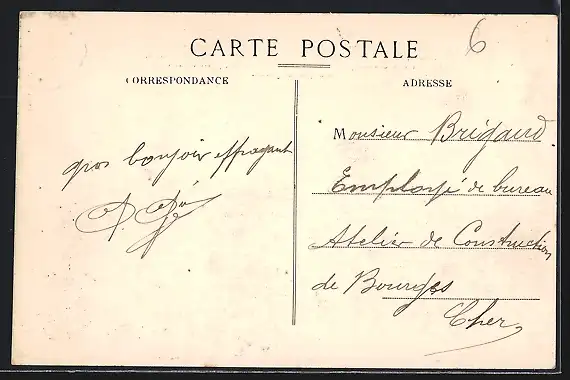 CARTE POSTALE
6
CORRESPONDANCE
ADRESSE
gros bonjour
Monsieur Brigaud
Employé de bureau
Atelier de Construction
de Bourges
Cher